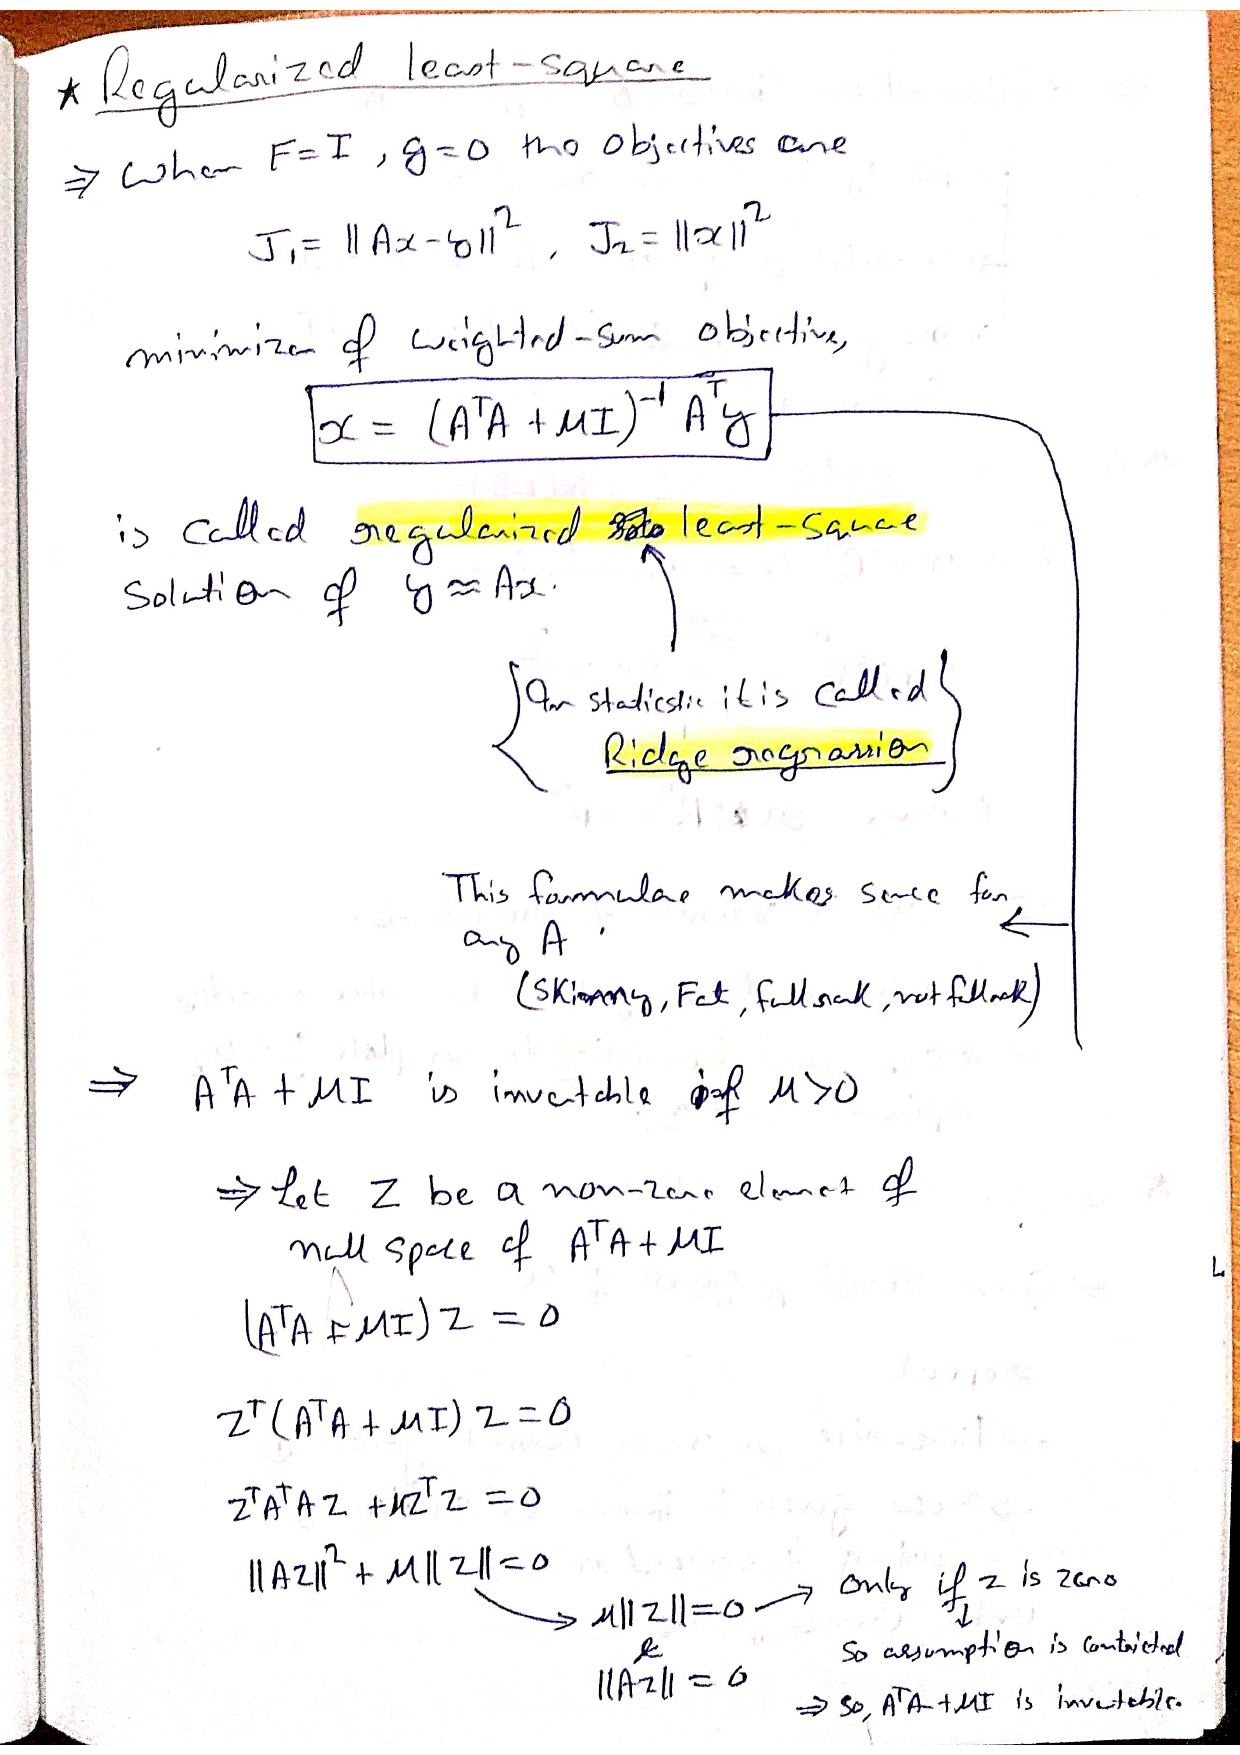 * Regularized least-square
⇒ When F=I, g=0 the objectives are
J₁ = ||Ax-y||², J₂ = ||x||²
minimizer of weighted-sum objective,
x = (AᵀA + μI)⁻¹ Aᵀy
is called regularized least-square
Solution of y ≈ Ax.
{In staticstic it is called
Ridge regression}
This formulae makes sence for
any A
(Skinny, Fat, full rank, not full rank)
⇒ AᵀA + μI is invertable if μ>0
⇒ Let z be a non-zero element of
null space of AᵀA + μI
(AᵀA + μI) z = 0
zᵀ(AᵀA + μI) z = 0
zᵀAᵀAz + μzᵀz = 0
||Az||² + μ||z|| = 0
→ μ||z|| = 0 → only if z is zero
&
||Az|| = 0
↓
So assumption is contricted
⇒ So, AᵀA + μI is invertable.